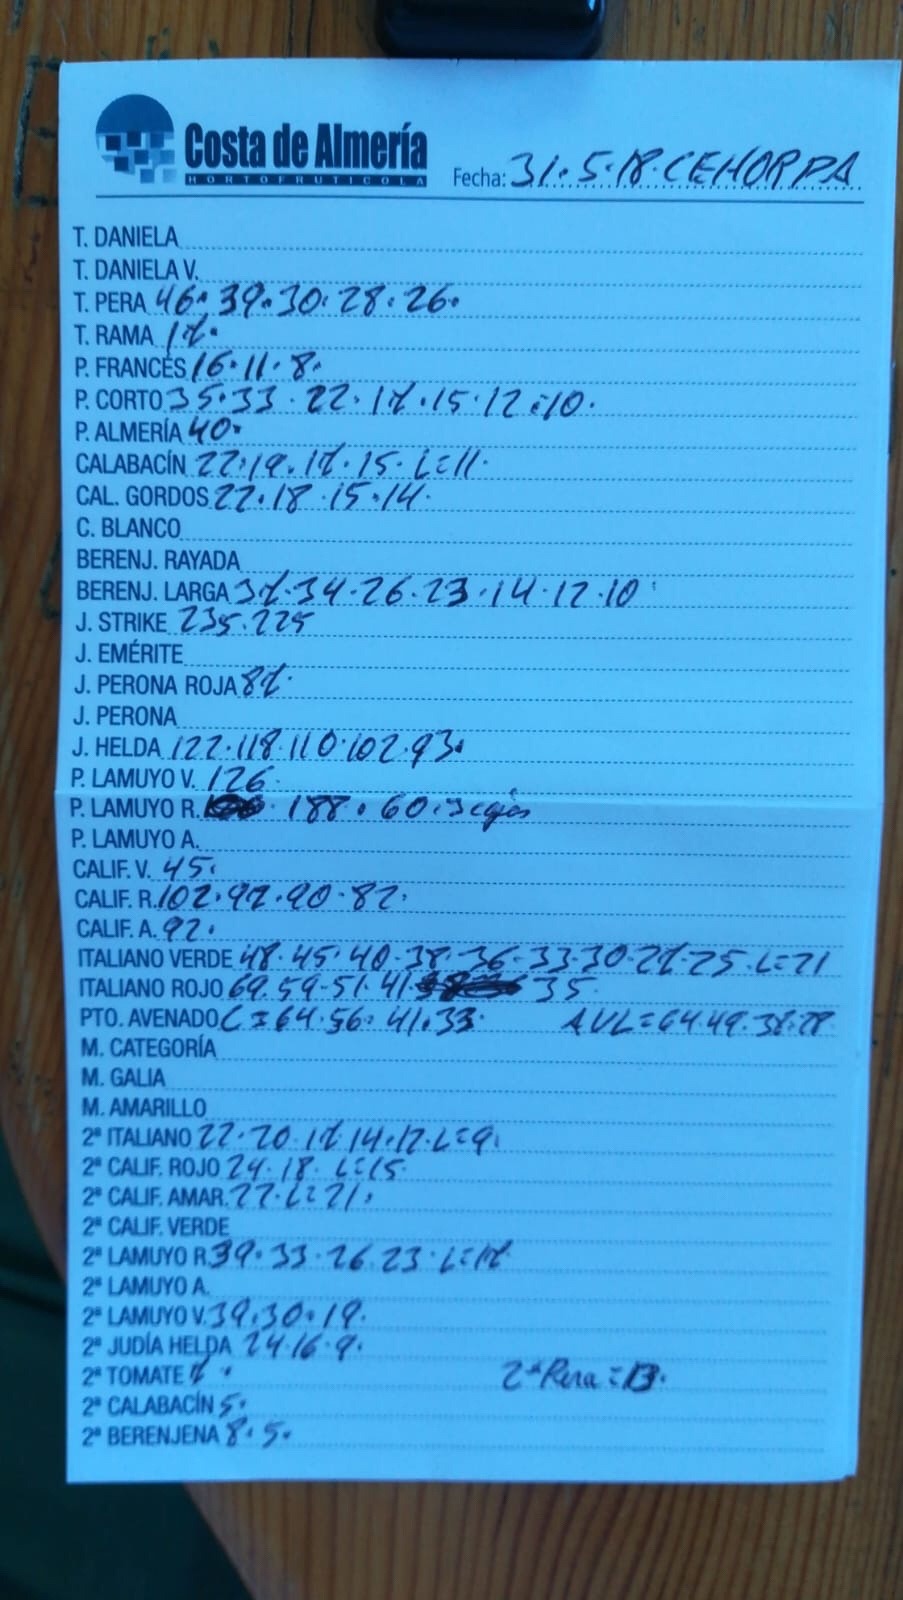 Costa de Almería
HORTOFRUTICOLA
Fecha: 31.5.18.CEHORPA
T. DANIELA
T. DANIELA V.
T. PERA 46.39.30.28.26.
T. RAMA 17.
P. FRANCÉS 16.11.8.
P. CORTO 35.33.22.17.15.12.10.
P. ALMERÍA 40.
CALABACÍN 22.19.17.15.L=11.
CAL. GORDOS 22.18.15.14.
C. BLANCO
BERENJ. RAYADA
BERENJ. LARGA 37.34.26.23.14.12.10
J. STRIKE 235.225
J. EMÉRITE
J. PERONA ROJA 87.
J. PERONA
J. HELDA 122.118.110.102.93.
P. LAMUYO V. 126
P. LAMUYO R. 188.60.3 cajas
P. LAMUYO A.
CALIF. V. 45.
CALIF. R. 102.97.90.82.
CALIF. A. 92.
ITALIANO VERDE 48.45.40.38.36.33.30.27.25.L=21
ITALIANO ROJO 69.59.51.41. 35.
PTO. AVENADO C=64.56.41.33. AVL=64.49.38.28
M. CATEGORÍA
M. GALIA
M. AMARILLO
2ª ITALIANO 22.20.17.14.12.L=9.
2ª CALIF. ROJO 24.18.L=15
2ª CALIF. AMAR. 22.L=21.
2ª CALIF. VERDE
2ª LAMUYO R. 39.33.26.23.L=17.
2ª LAMUYO A.
2ª LAMUYO V. 39.30.19.
2ª JUDÍA HELDA 24.16.9.
2ª TOMATE 7. 2ª Pera=13.
2ª CALABACÍN 5.
2ª BERENJENA 8.5.